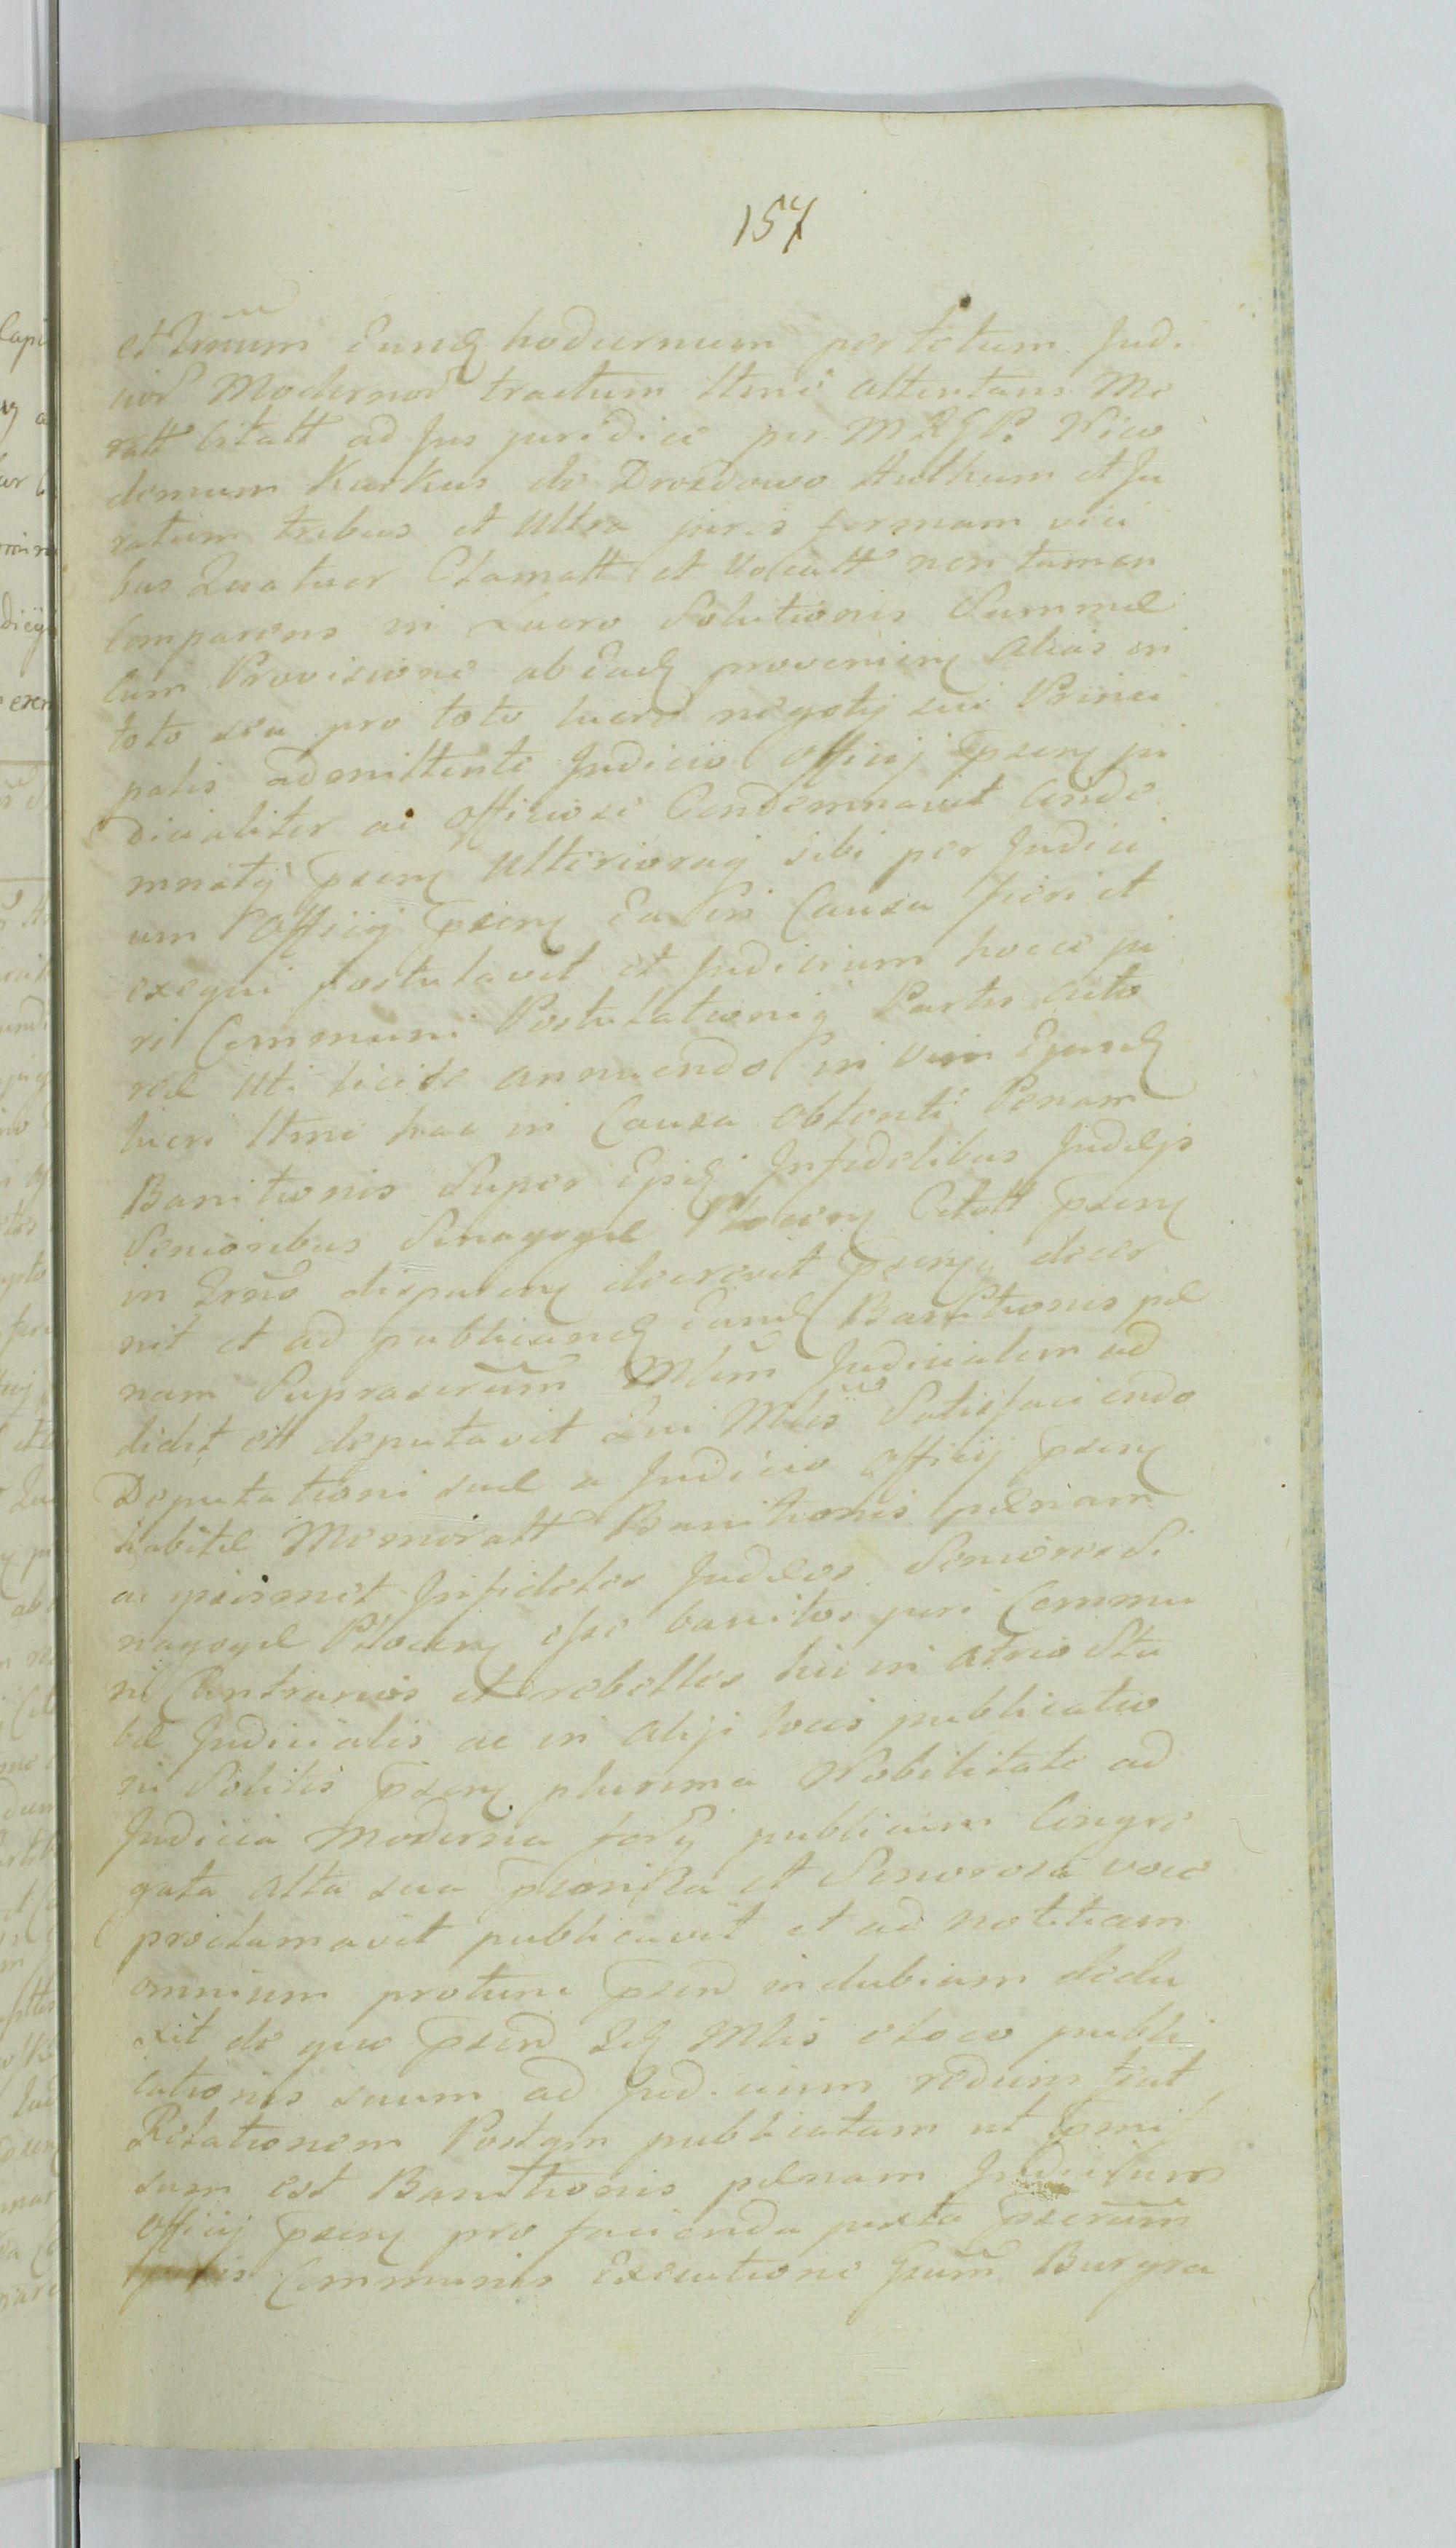 157
et Trnūm Eund hodiernum per totum Judi
cior Modernor tractum ltmē attentans Me
ratt Citatt ad Jus juridice per MRGP. Nico
demum Karkus de Drozdowo Authum et Ju
ratum tribus et Ultra juris formam vici
bus Quatuor Clamatt et Vocatt non tamen
Comparens in Lucro Solutionis Summæ
Cum Provisione ab Ead provenien alias in
toto seu pro toto lucro negotij sui Princi
palis admittente Judicio Officij Pnsen ju
dicialiter ac officiose Condemnavit Conde
mnatij Pnsen Ulterioraq sibi per Judici
um Officij Pnsen Ea in Causa fieri et
exequi postulavit et Judicium hocce ju
ri Communi Postulationiq Partis Acto
reæ Uti licitæ annuendo in Vim Ejusd
lucri ltme hac in Causa obtenti Penam
Banitionis Super Ipsis Infidelibus Judæjs
Senioribus Sinagogæ Plocen Citatt Pnsen
in Trnō disparen decrevit Pnsenq decer
nit et ad publicand Eand Banitionis pæ
nam Suprascrūm Mlem Judicialem ad
didit ett deputavit Qui Mlis Satisfaciendo
Deputationi suæ a Judicio Officij Pnsen
habitæ Memoratt Banitionis pænam
ac ipsismet Infideles Judæos Seniores Si
nagogæ Plocen esse banitos juri Commu
ni Contrarios et rebelles hic in atrio Stu
bæ Judicialis ac in alijs locis publicatio
ni Solitis Pnsen plurima Nobilitate ad
Judicia moderna forq publicum Congre
gata alta sua Psonista et Sonorosa voce
proclamavit publicavit et ad notitiam
omnium protunc Pnsen indubiam dedu
xit de quo Pnsen Id Mlis e loco publi
cationis suum ad Judicium rediens fecit
Relationem Postqm publicatam ut Pmis
sum est Banitionis pænam Judicium
Officij Pnsen pro facienda juxta Pscrūm
juris Communis Executione Gsum Burgra